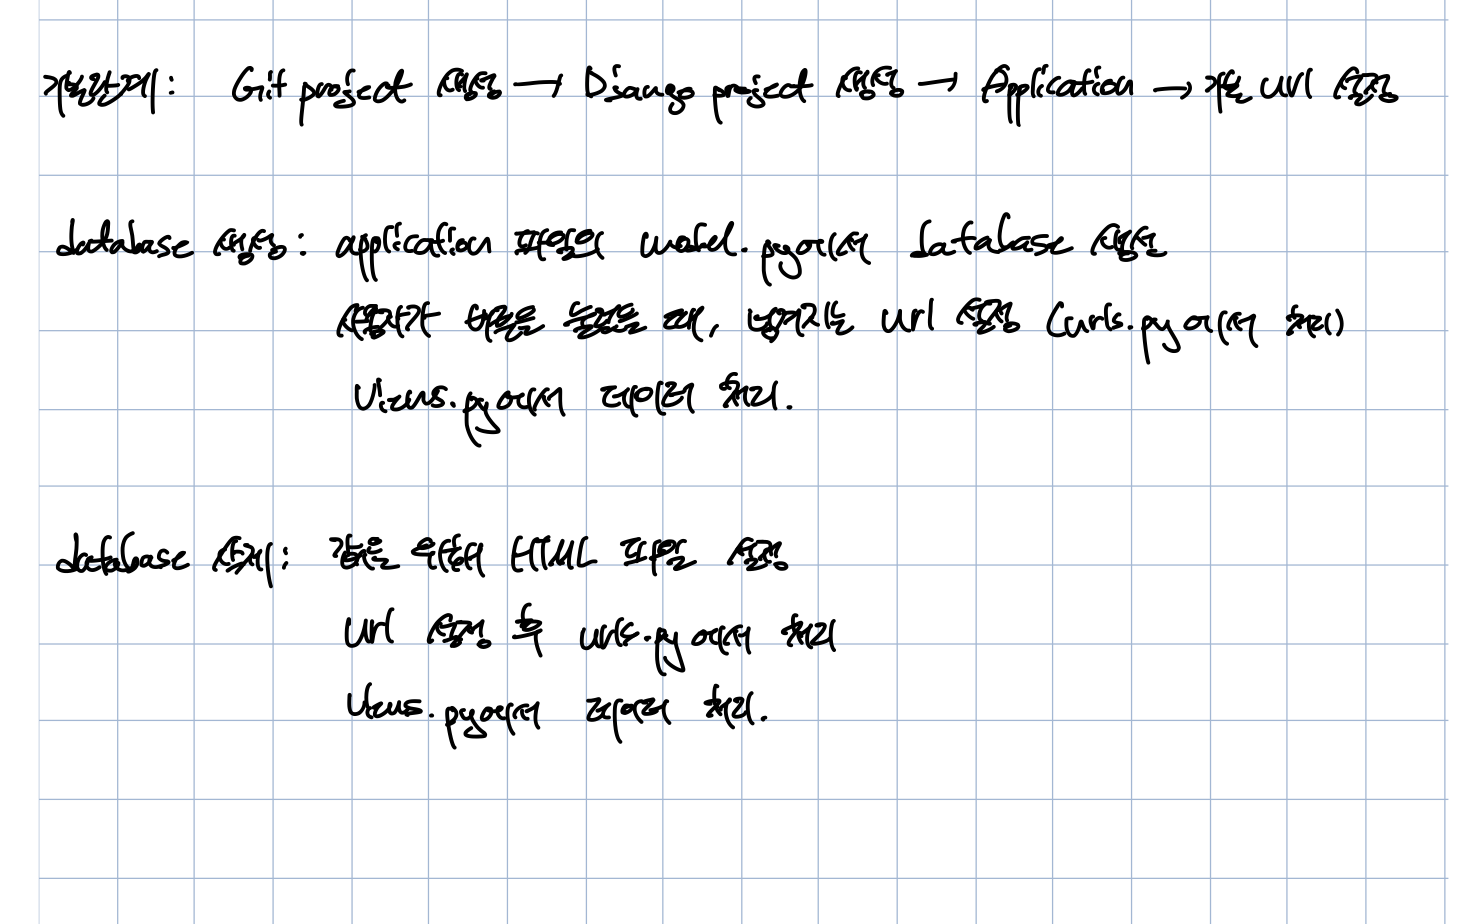 개발단계: Git project 생성 → Django project 생성 → Application → 기본 url 설정
database 생성: application 파일의 model.py에서 database 생성
사용자가 버튼을 눌렀을 때, 넘겨지는 url 설정 (urls.py에서 처리)
Views.py에서 데이터 처리.
database 삭제: 삭제를 위해 HTML 파일 설정
url 설정 후 urls.py에서 처리
Views.py에서 데이터 처리.